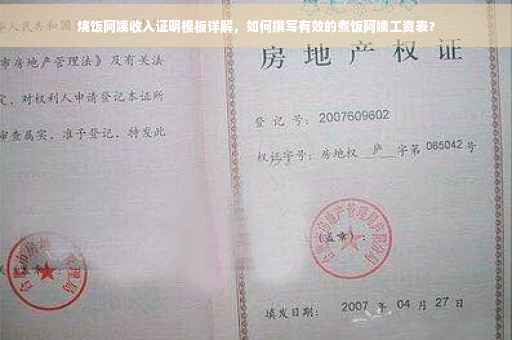 烧饭阿姨收入证明模板详解，如何撰写有效的煮饭阿姨工资表？
华人民共和国
市房地产管理法》及有关法
定，对权利人申请登记本证所
审查属实，准予登记，特发此
房地产权证
登记号：2007609602
权证字号：房地权 庐 字第 065042 号
(盖章)：
填发日期： 2007 年 04 月 27 日